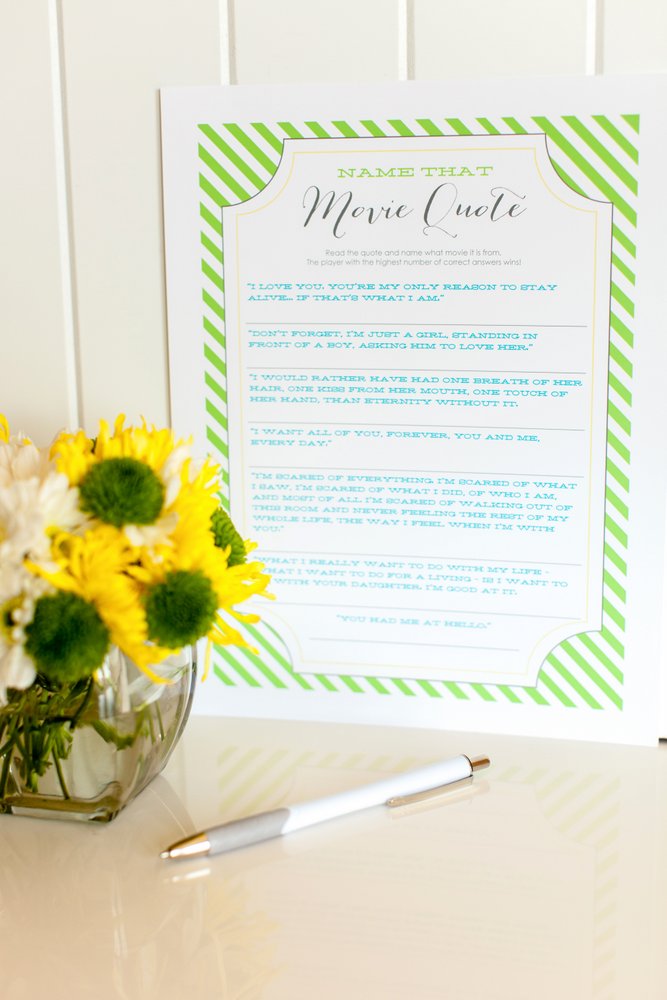 NAME THAT
Movie Quote
Read the quote and name what movie it is from.
The player with the highest number of correct answers wins!
"I LOVE YOU. YOU'RE MY ONLY REASON TO STAY
ALIVE... IF THAT'S WHAT I AM."
"DON'T FORGET, I'M JUST A GIRL, STANDING IN
FRONT OF A BOY, ASKING HIM TO LOVE HER."
"I WOULD RATHER HAVE HAD ONE BREATH OF HER
HAIR, ONE KISS FROM HER MOUTH, ONE TOUCH OF
HER HAND, THAN ETERNITY WITHOUT IT.
"I WANT ALL OF YOU, FOREVER, YOU AND ME,
EVERY DAY."
"I'M SCARED OF EVERYTHING. I'M SCARED OF WHAT
I SAW, I'M SCARED OF WHAT I DID, OF WHO I AM,
AND MOST OF ALL I'M SCARED OF WALKING OUT OF
THIS ROOM AND NEVER FEELING THE REST OF MY
WHOLE LIFE, THE WAY I FEEL WHEN I'M WITH
YOU."
WHAT I REALLY WANT TO DO WITH MY LIFE -
WHAT I WANT TO DO FOR A LIVING - IS I WANT TO
WITH YOUR DAUGHTER. I'M GOOD AT IT.
"YOU HAD ME AT HELLO."